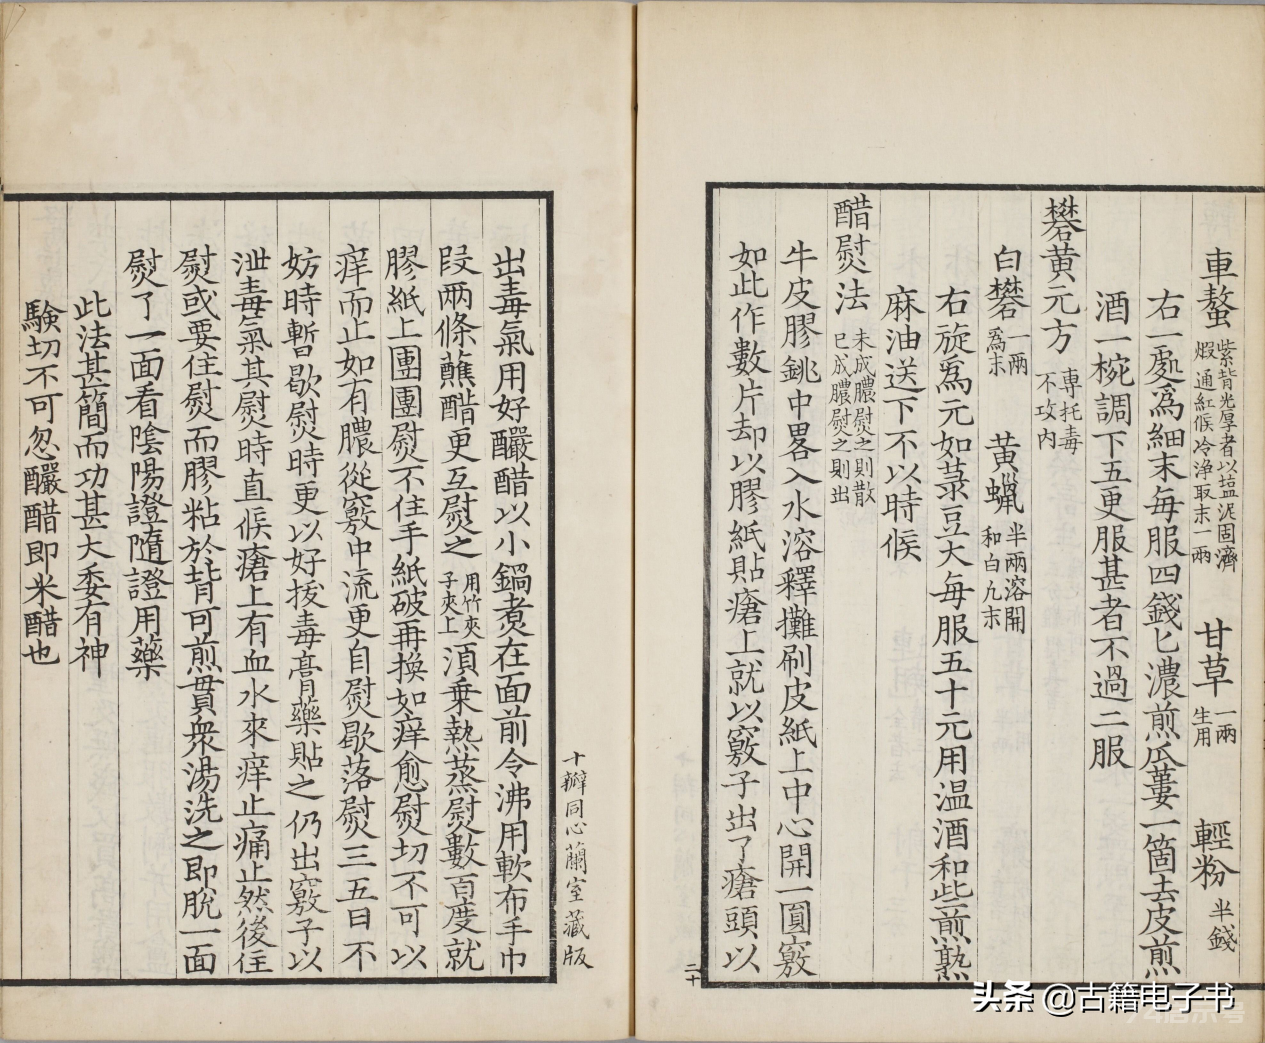 車螯 紫背光厚者以塩泥固濟煆通紅候冷净取末一兩 甘草 一兩生用 輕粉 半錢
右一處爲細末每服四錢匕濃煎瓜蔞一箇去皮煎
酒一椀調下五更服甚者不過二服
礬黄元方 専托毒不攻内
白礬 一兩爲末 黄蠟 半兩溶開和白九末
右旋爲元如菉豆大每服五十元用温酒和些煎熟
麻油送下不以時候
醋熨法 未成膿熨之則散已成膿熨之則出
牛皮膠銚中畧入水溶釋攤刷皮紙上中心開一圓竅
如此作數片却以膠紙貼瘡上就以竅子出了瘡頭以
出毒氣用好釅醋以小鍋煮在面前令沸用軟布手巾
段兩條蘸醋更互熨之 用竹夾子夾上 湏乗熱蒸熨數百度就
膠紙上團團熨不住手紙破再換如痒愈熨切不可以
痒而止如有膿從竅中流更自熨歇落熨三五日不
妨時暫歇熨時更以好拔毒膏藥貼之仍出竅子以
泄毒氣其熨時直候瘡上有血水來痒止痛止然後住
熨或要住熨而膠粘於背可煎貫衆湯洗之即脫一面
熨了一面看陰陽證隨證用藥
此法甚簡而功甚大委有神
驗切不可忽釅醋即米醋也
十瓣同心蘭室藏版
二十
头条 @古籍电子书